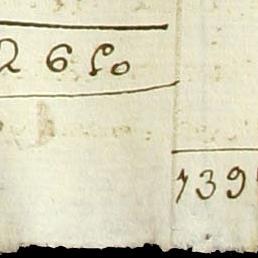 2650
739